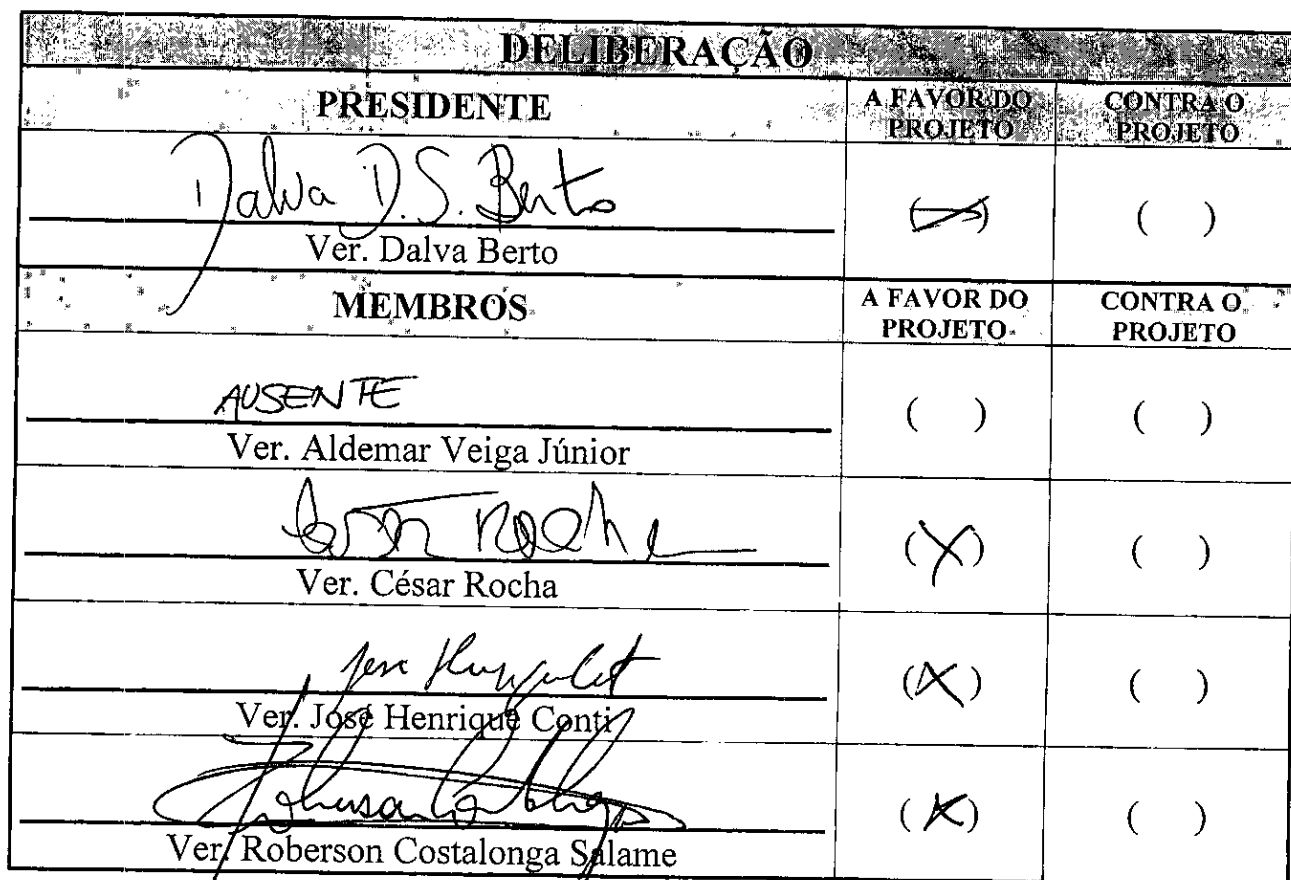 DELIBERAÇÃO
PRESIDENTE A FAVOR DO PROJETO CONTRA O PROJETO
Dalva D.S. Berto
Ver. Dalva Berto (X) ( )
MEMBROS A FAVOR DO PROJETO CONTRA O PROJETO
AUSENTE
Ver. Aldemar Veiga Júnior ( ) ( )
Rocha
Ver. César Rocha (X) ( )
Ver. José Henrique Conti (X) ( )
Ver. Roberson Costalonga Salame (X) ( )